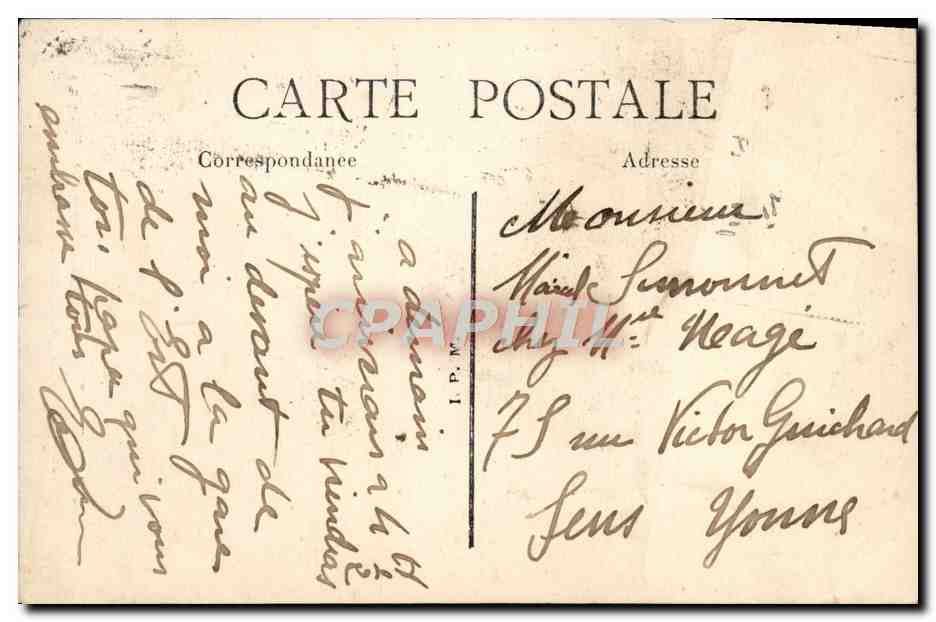 CARTE POSTALE
Correspondance
Adresse
a demain
j'arriverais a 4 H 1/2
j'espère tu viendras
au devant de
moi a la gare
de l'Est
ton papa qui vous
embrasse tous
I. P. M.
Monsieur
Marcel Simonnet
chez Mme Neagé
75 rue Victor Guichard
Sens Yonne
CPAPHIL